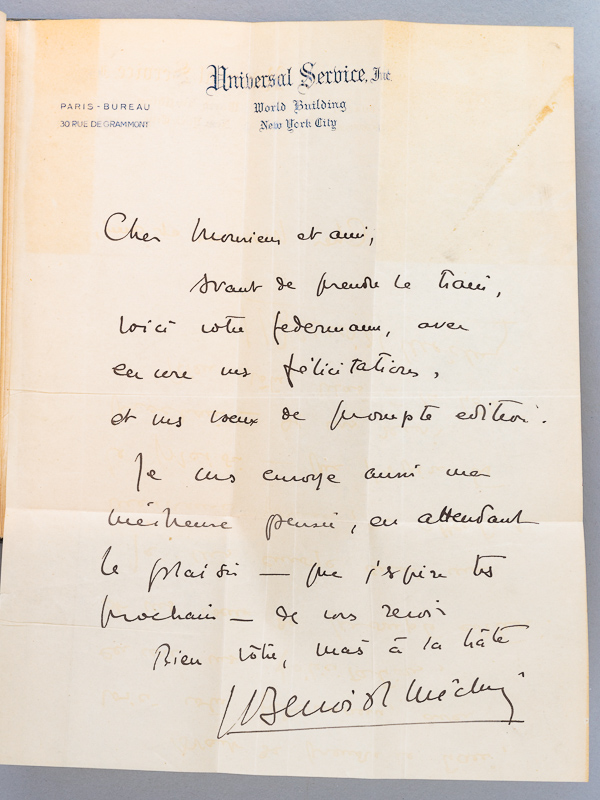 Universal Service, Inc
World Building
New York City
PARIS - BUREAU
30 RUE DE GRAMMONT
Cher Monsieur et ami,
Avant de prendre le train,
voici votre federmann, avec
encore mes félicitations,
et mes vœux de prompte edition.
Je vous envoye aussi ma
meilleure pensée, en attendant
le plaisir — que j'espère très
prochain — de vous revoir
Bien vôtre, mais à la hâte
Benoist Méchin